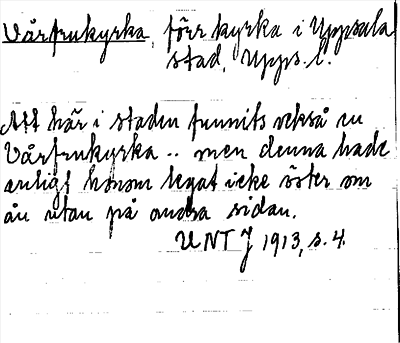 Vårfrukyrka, förr kyrka i Uppsala
stad, Upps. l.
Att här i staden funnits också en
Vårfrukyrka .. men denna hade
enligt honom legat icke öster om
ån utan på andra sidan.
UNT J 1913, s. 4.